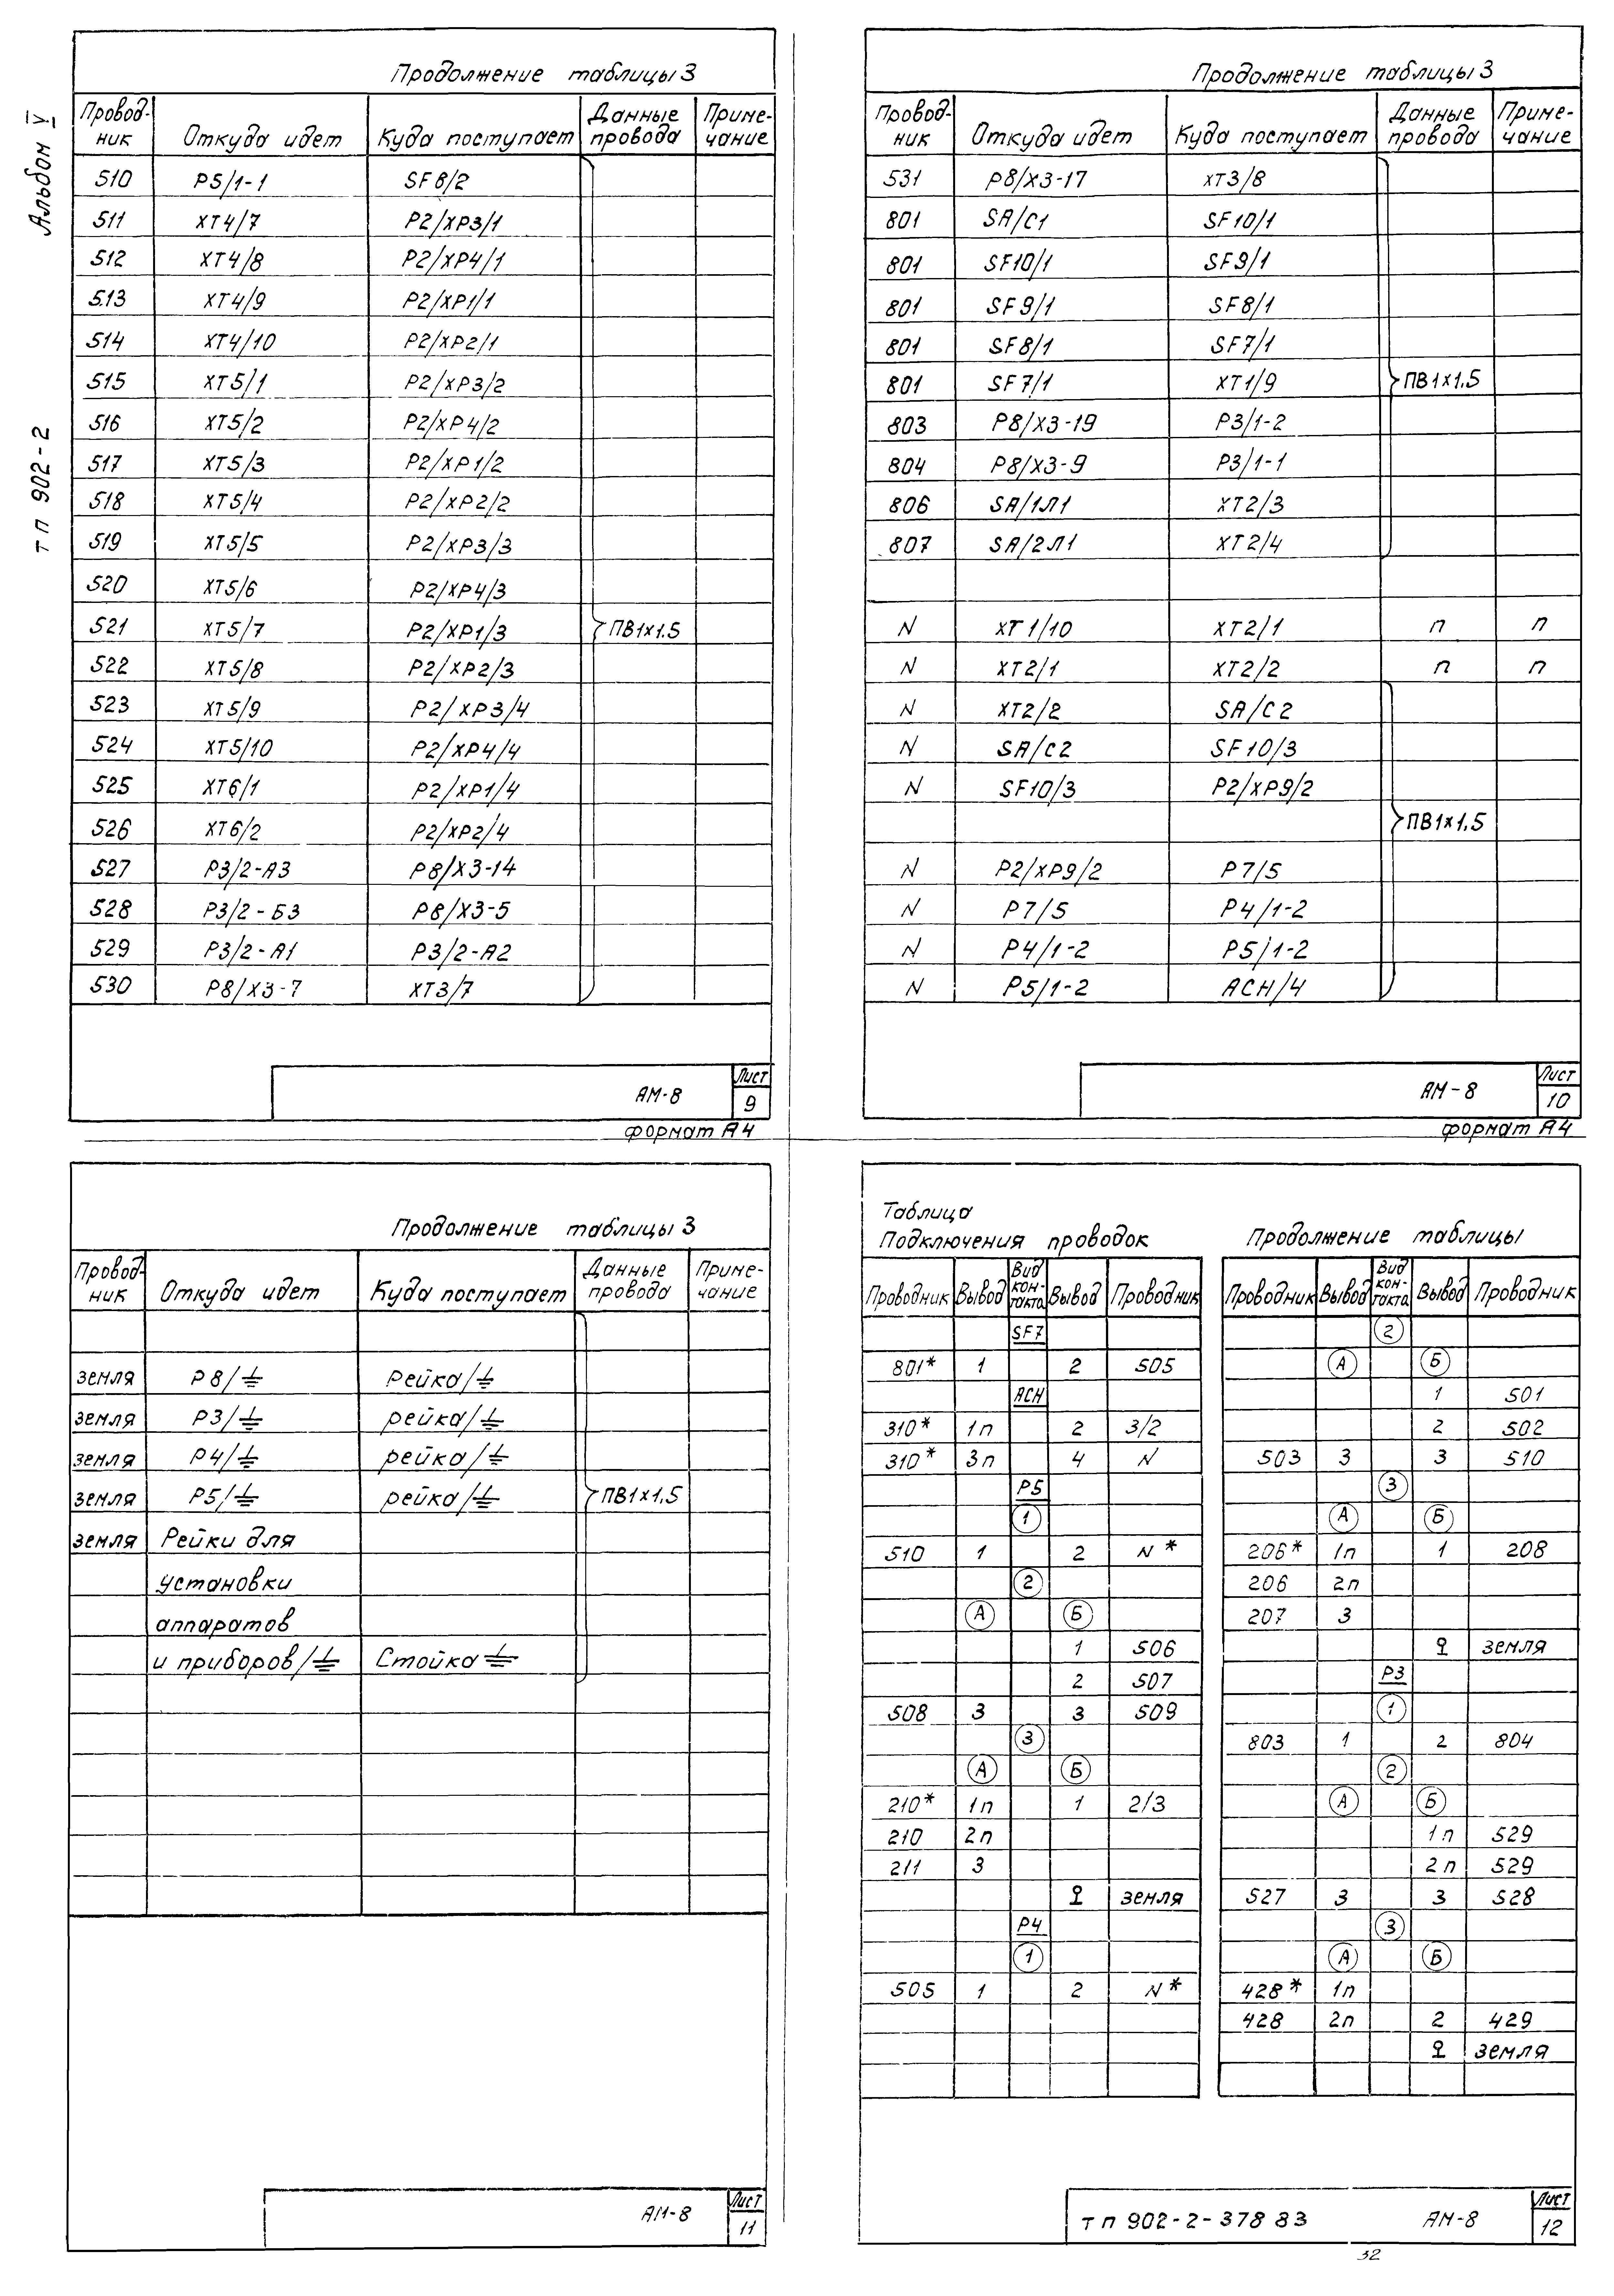 Альбом V
тп 902-2
Продолжение таблицы 3
Провод-ник Откуда идет Куда поступает Данные провода Приме-чание
510 Р5/1-1 SF8/2
511 ХТ4/7 Р2/ХР3/1
512 ХТ4/8 Р2/ХР4/1
513 ХТ4/9 Р2/ХР1/1
514 ХТ4/10 Р2/ХР2/1
515 ХТ5/1 Р2/ХР3/2
516 ХТ5/2 Р2/ХР4/2
517 ХТ5/3 Р2/ХР1/2
518 ХТ5/4 Р2/ХР2/2
519 ХТ5/5 Р2/ХР3/3
520 ХТ5/6 Р2/ХР4/3
521 ХТ5/7 Р2/ХР1/3 ПВ1х1.5
522 ХТ5/8 Р2/ХР2/3
523 ХТ5/9 Р2/ХР3/4
524 ХТ5/10 Р2/ХР4/4
525 ХТ6/1 Р2/ХР1/4
526 ХТ6/2 Р2/ХР2/4
527 Р3/2-А3 Р8/Х3-14
528 Р3/2-Б3 Р8/Х3-5
529 Р3/2-А1 Р3/2-А2
530 Р8/Х3-7 ХТ3/7
АМ-8 Лист 9
формат А4
Продолжение таблицы 3
Провод-ник Откуда идет Куда поступает Данные провода Приме-чание
531 Р8/Х3-17 ХТ3/8
801 SA/C1 SF10/1
801 SF10/1 SF9/1
801 SF9/1 SF8/1
801 SF8/1 SF7/1
801 SF7/1 ХТ1/9 ПВ1х1,5
803 Р8/Х3-19 Р3/1-2
804 Р8/Х3-9 Р3/1-1
806 SA/1Л1 ХТ2/3
807 SA/2Л1 ХТ2/4
N ХТ1/10 ХТ2/1 п п
N ХТ2/1 ХТ2/2 п п
N ХТ2/2 SA/C2
N SA/C2 SF10/3
N SF10/3 Р2/ХР9/2
ПВ1х1,5
N Р2/ХР9/2 Р7/5
N Р7/5 Р4/1-2
N Р4/1-2 Р5/1-2
N Р5/1-2 АСН/4
АМ-8 Лист 10
формат А4
Продолжение таблицы 3
Провод-ник Откуда идет Куда поступает Данные провода Приме-чание
земля Р8/⏚ рейка/⏚
земля Р3/⏚ рейка/⏚
земля Р4/⏚ рейка/⏚
земля Р5/⏚ рейка/⏚ ПВ1х1,5
земля Рейки для
установки
аппаратов
и приборов/⏚ Стойка⏚
АМ-8 Лист 11
Таблица
Подключения проводок
Проводник Вывод Вид кон-такта Вывод Проводник
SF7
801* 1 2 505
АСН
310* 1п 2 3/2
310* 3п 4 N
Р5
1
510 1 2 N*
2
А Б
1 506
2 507
508 3 3 509
3
А Б
210* 1п 1 2/3
210 2п
211 3
земля
Р4
1
505 1 2 N*
Продолжение таблицы
Проводник Вывод Вид кон-такта Вывод Проводник
2
А Б
1 501
2 502
503 3 3 510
3
А Б
206* 1п 1 208
206 2п
207 3
земля
Р3
1
803 1 2 804
2
А Б
1п 529
2п 529
527 3 3 528
3
А Б
428* 1п
428 2п 2 429
земля
тп 902-2-378 83 АМ-8 Лист 12
32